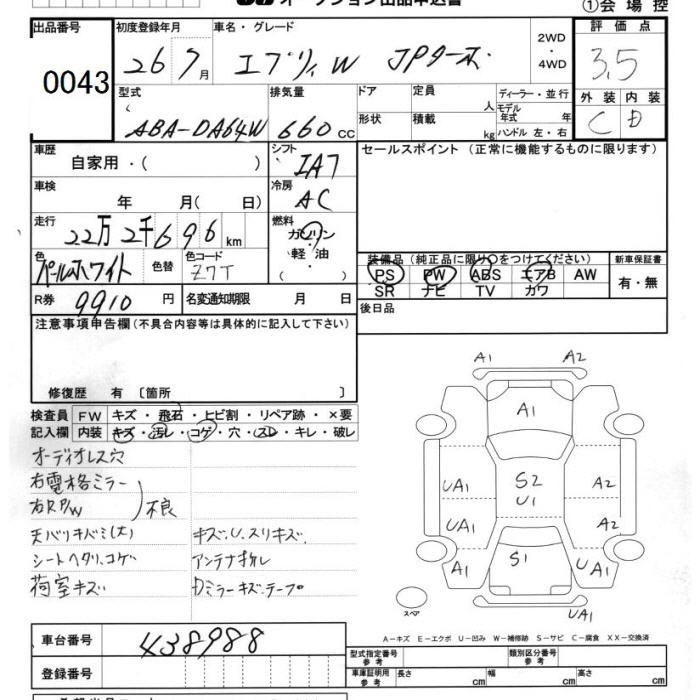 ①会場控
出品番号 初度登録年月 車名・グレード 2WD ・ 4WD 評価点
0043 26 7月 エブリィW JPターボ 3.5
型式 排気量 ドア 定員 人 ディーラー・並行 外装 内装
ABA-DA64W 660 cc 形状 積載 kg モデル年式 年 ハンドル 左・右 C D
車歴 自家用・( ) シフト IA7 セールスポイント (正常に機能するものに限ります)
車検 年 月( 日) 冷房 AC
走行 22万2千696km 燃料 ガソリン・軽油・( )
色 パールホワイト 色替 色コード Z7T
装備品(純正品に限り○をつけてください) 新車保証書
PS PW ABS エアB AW 有・無
SR ナビ TV カワ
R券 9910円 名変通知期限 月 日 後日品
注意事項申告欄(不具合内容等は具体的に記入して下さい)
修復歴 有 〔箇所 〕
検査員 FW キズ・飛石・ヒビ割・リペア跡・×要
記入欄 内装 キズ・汚レ・コゲ・穴・スレ・キレ・破レ
オーディオレス穴
右電格ミラー
右R.P/W 不良
天バリキバミ(大) キズ.U.スリキズ
シートヘタリ.コゲ アンテナ折レ
荷室キズ
A1 A2
A1
UA1 S2 A2
UA1 U1 A2
A1 S1 UA1
UA1
スペア
A-キズ E-エクボ U-凹み W-補修跡 S-サビ C-腐食 XX-交換済
車台番号 438988
型式指定番号 参考 類別区分番号 参考
登録番号 車庫証明用 参考 長さ cm 幅 cm 高さ cm